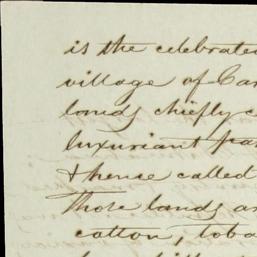 is the celebrated
village of Car
lands chiefly c
luxuriant pa
& hence called
Those lands a
cotton, toba